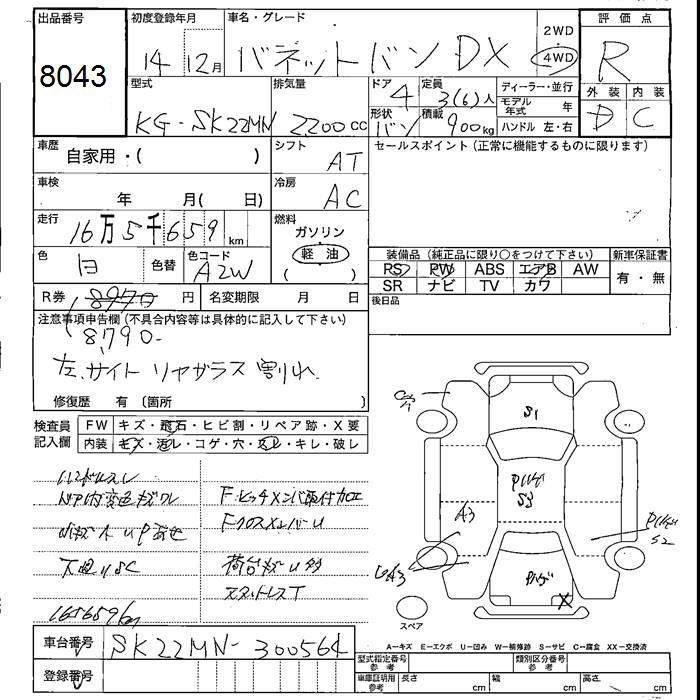 出品番号
8043
初度登録年月
14年 12月
車名・グレード
バネットバン DX
2WD
4WD
評価点
R
外装 内装
D C
型式
KG-SK22MN
排気量
2200 cc
ドア
4
形状
バン
定員
3(6)人
積載
900kg
ディーラー・並行
モデル年式 年
ハンドル 左・右
車歴
自家用・( )
シフト
AT
セールスポイント(正常に機能するものに限ります)
車検
年 月( 日)
冷房
AC
走行
16万5千659 km
燃料
ガソリン
軽油
( )
色
白
色替
色コード
A2W
装備品(純正品に限り○をつけて下さい)
新車保証書
PS PW ABS エアB AW
SR ナビ TV カワ
有・無
R券
8970 円
名変期限 月 日
後日品
注意事項申告欄(不具合内容等は具体的に記入して下さい)
8,790-
左サイト リヤガラス 割れ
修復歴 有 〔箇所
検査員記入欄
FW キズ・飛石・ヒビ割・リペア跡・X要
内装 キズ・汚レ・コゲ・穴・スレ・キレ・破レ
ハンドルスレ
ドア内変色キズワレ
下廻りSC
165659km
FクロスメンバーU
荷台キズU多
スタットレスT
S1
S3
A3
S2
スペア
A-キズ E-エクボ U-凹み W-補修跡 S-サビ C-腐食 XX-交換済
車台番号
SK22MN-300564
登録番号
型式指定番号参考
類別区分番号
車庫証明用参考
長さ cm 幅 cm 高さ cm